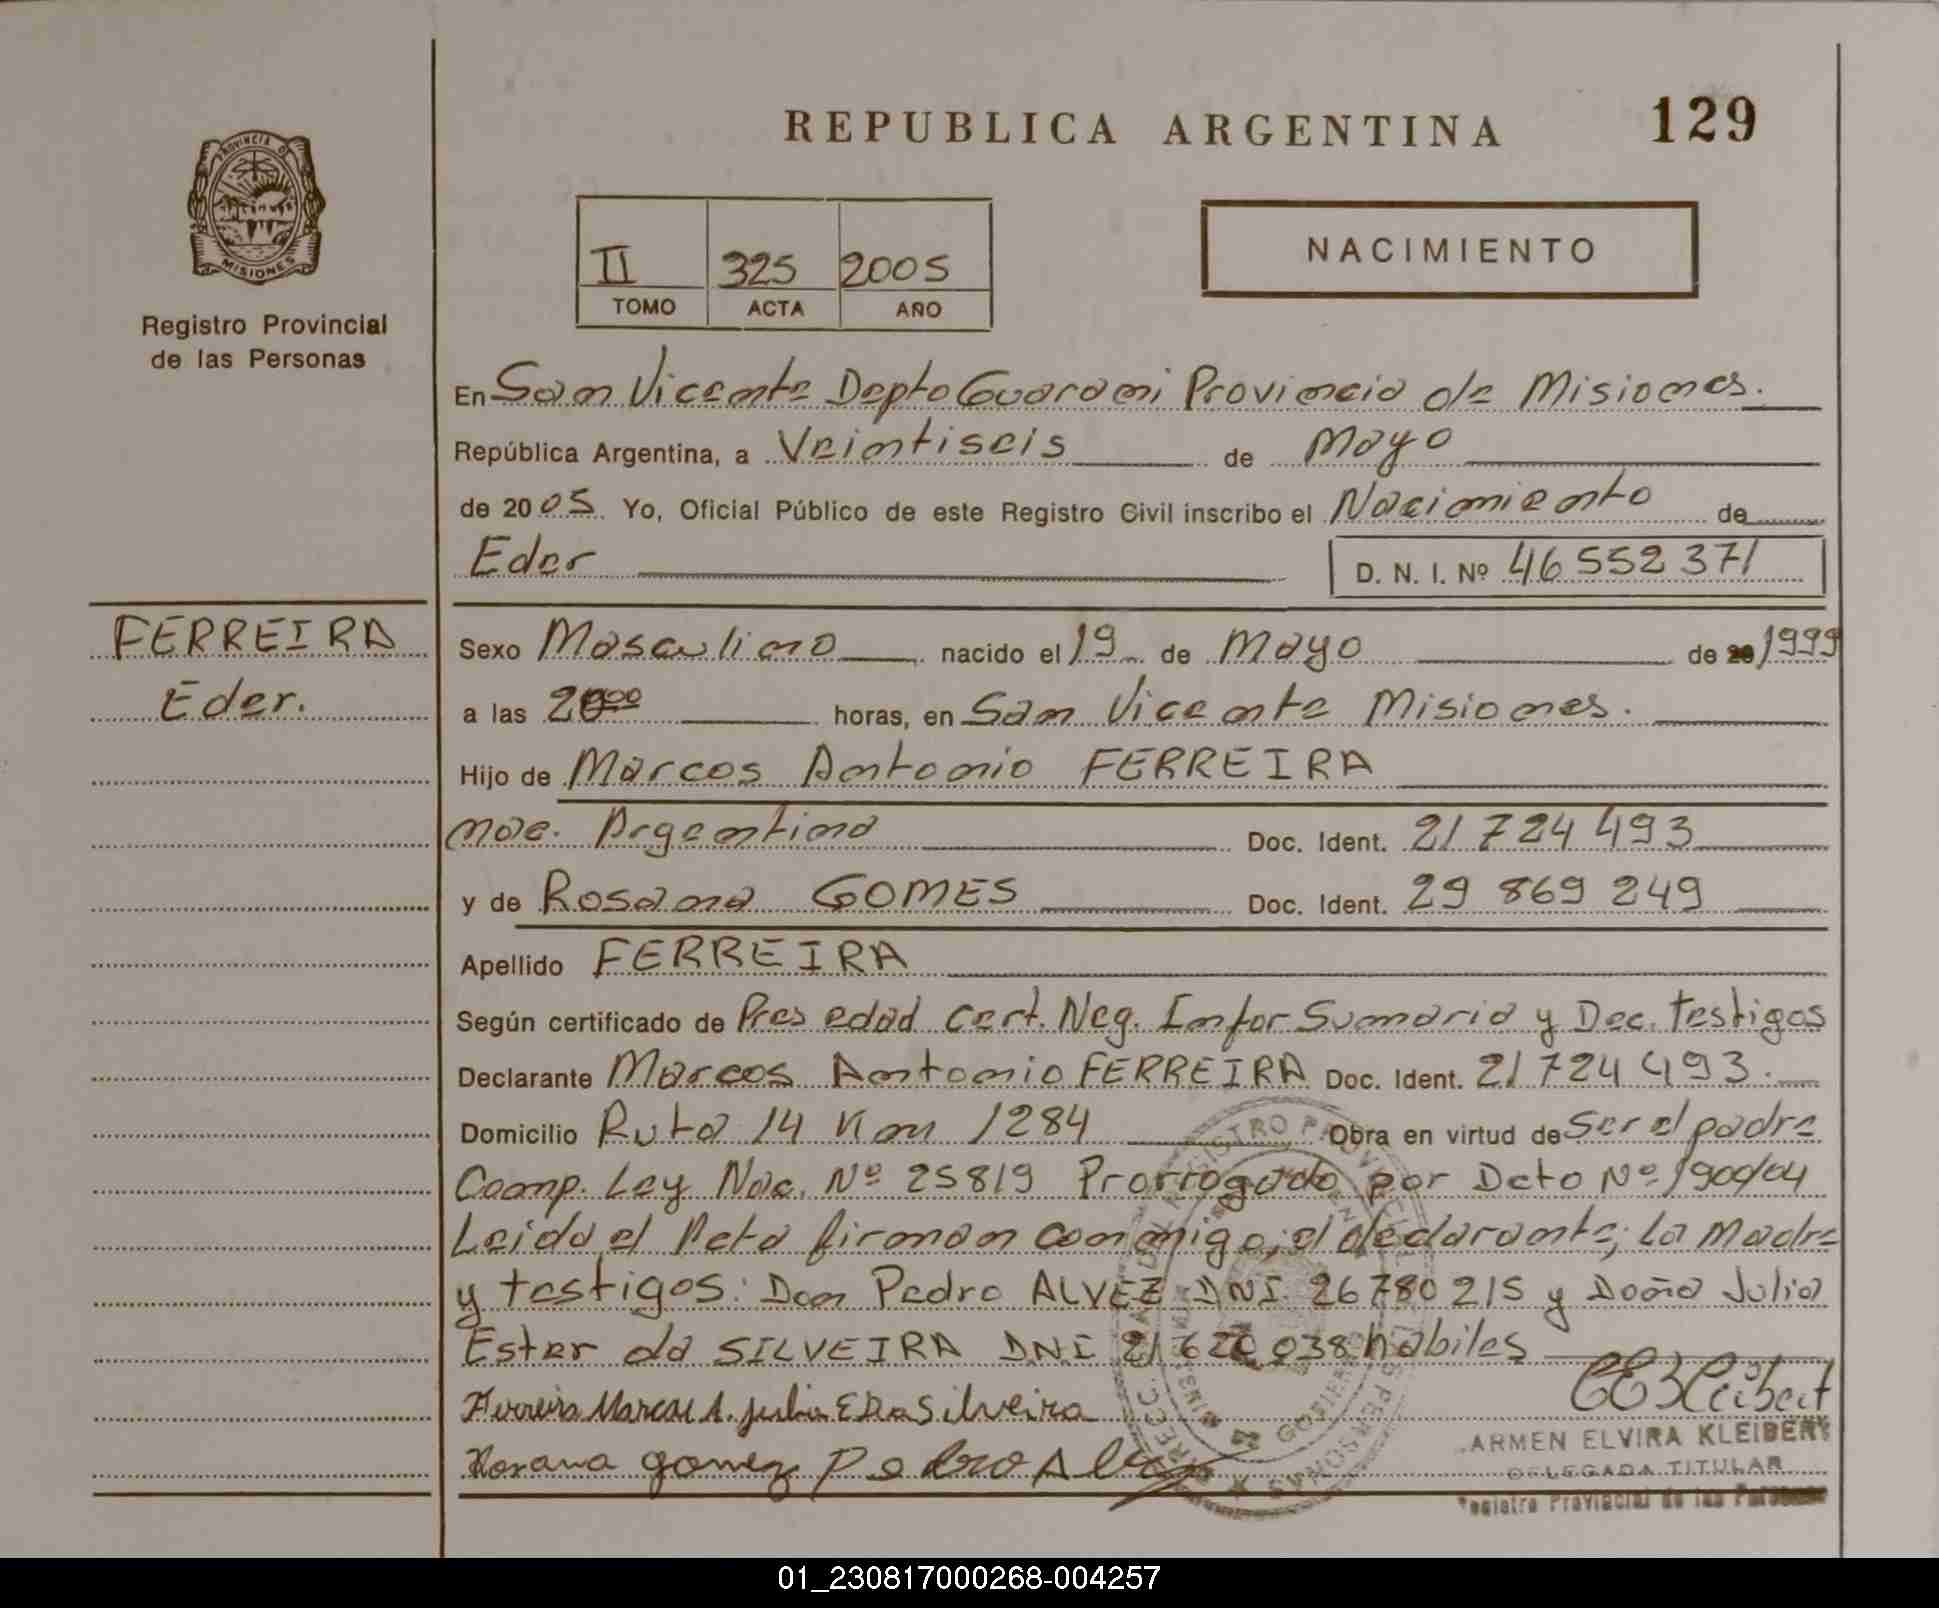 REPUBLICA ARGENTINA
129
PROVINCIA D
MISIONES
Registro Provincial
de las Personas
II 325 2005
TOMO ACTA AÑO
NACIMIENTO
En San Vicente Depto Guarani Provincia de Misiones.
República Argentina, a Veintiseis de Mayo
de 2005. Yo, Oficial Público de este Registro Civil inscribo el Nacimiento de
Eder
D. N. I. Nº 46 552 371
FERREIRA
Eder.
Sexo Masculino nacido el 19 de Mayo de 20 1999
a las 20 00 horas, en San Vicente Misiones.
Hijo de Marcos Antonio FERREIRA
nac. Argentina Doc. Ident. 21 724 493
y de Rosana GOMES Doc. Ident. 29 869 249
Apellido FERREIRA
Según certificado de Pres edad cert. Neg. Infor Sumaria y Dec. testigos
Declarante Marcos Antonio FERREIRA Doc. Ident. 21 724 493.
Domicilio Ruta 14 Km 1284 Obra en virtud de Ser el padre
Comp. Ley Nac. Nº 25819 Prorrogado por Dcto Nº 1900/04
Leida el Acta firman conmigo, el declarante; la Madre
y testigos: Don Pedro ALVEZ DNI 26780215 y Doña Julia
Ester da SILVEIRA DNI 21 620 038 habiles
Ferreira Marcos A. Julia E Da Silveira
Roxana gomez Pedro Alvez
CEKleibert
ARMEN ELVIRA KLEIBERT
DELEGADA TITULAR
Registro Provincial de las Personas
01_230817000268-004257